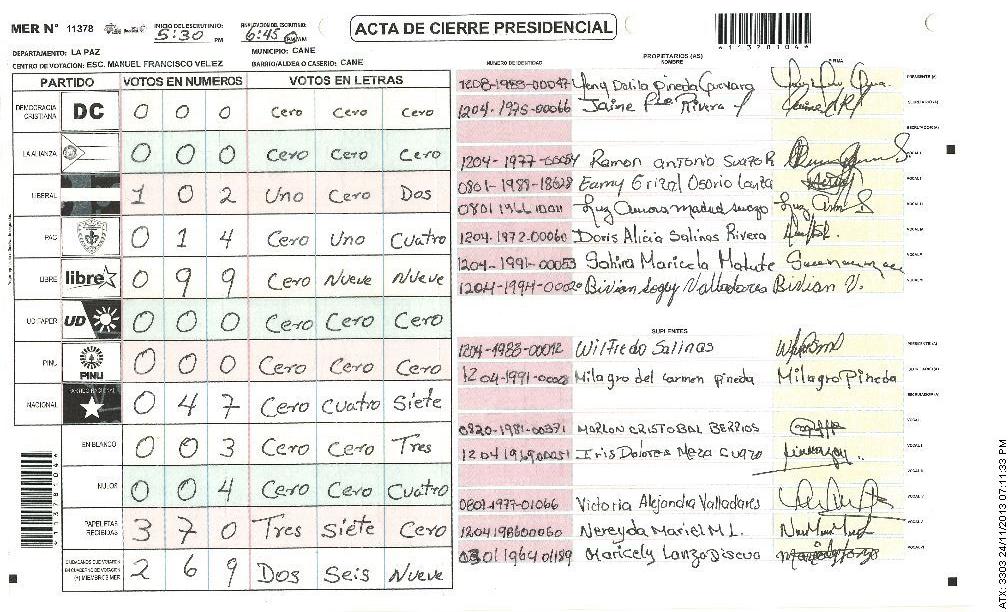 MER N° 11378
INICIO DEL ESCRUTINIO: 5:30 PM
FINALIZACION DEL ESCRUTINIO: 6:45 PM
ACTA DE CIERRE PRESIDENCIAL
DEPARTAMENTO: LA PAZ
MUNICPIO: CANE
CENTRO DE VOTACION: ESC. MANUEL FRANCISCO VELEZ
BARRIO/ALDEA O CASERIO: CANE
PARTIDO VOTOS EN NUMEROS VOTOS EN LETRAS
DEMOCRACIA CRISTIANA DC 0 0 0 Cero Cero Cero
LA ALIANZA 0 0 0 Cero Cero Cero
LIBERAL 1 0 2 Uno Cero Dos
PAC 0 1 4 Cero Uno Cuatro
LIBRE libre 0 9 9 Cero Nueve Nueve
UD FAPER UD 0 0 0 Cero Cero Cero
PINU PINU 0 0 0 Cero Cero Cero
NACIONAL 0 4 7 Cero Cuatro Siete
EN BLANCO 0 0 3 Cero Cero Tres
NULOS 0 0 4 Cero Cero Cuatro
PAPELETAS RECIBIDAS 3 7 0 Tres Siete Cero
CIUDADANOS QUE VOTARON EN CUADERNO DE VOTACION (+) MIEMBROS MER 2 6 9 Dos Seis Nueve
PROPIETARIOS (AS)
NUMERO DE IDENTIDAD NOMBRE FIRMA
1208-1983-00047 Pineda Guevara PRESIDENTE (A)
1204-1975-00066 Jaime Rivera SECRETARIO (A)
ESCRUTADOR (A)
1204-1977-00054 Ramon Antonio Suazo R VOCAL I
0801-1989-18628 Osorio Lanza
Luz
1204-1972-00060 Doris Alicia Salinas Rivera
1204-1991-00053 Sahira Maricela Matute
Bivian Valladares Bivian V.
SUPLENTES
1204-1983-00092 Wilfredo Salinas PRESIDENTE (A)
1204-1991-0002 Milagro del Carmen Pineda Milagro Pineda
ESCRUTADOR (A)
0820-1981-00371 MARLON CRISTOBAL BERRIOS VOCAL I
Iris Dolores Meza Suazo
0801-1977-01066 Victoria Alejandra Valladares
1204198600060 Nereyda Mariel M L.
0301196401189 Maricely Lanza Discua
ATX: 3303 24/11/2013 07:11:33 PM